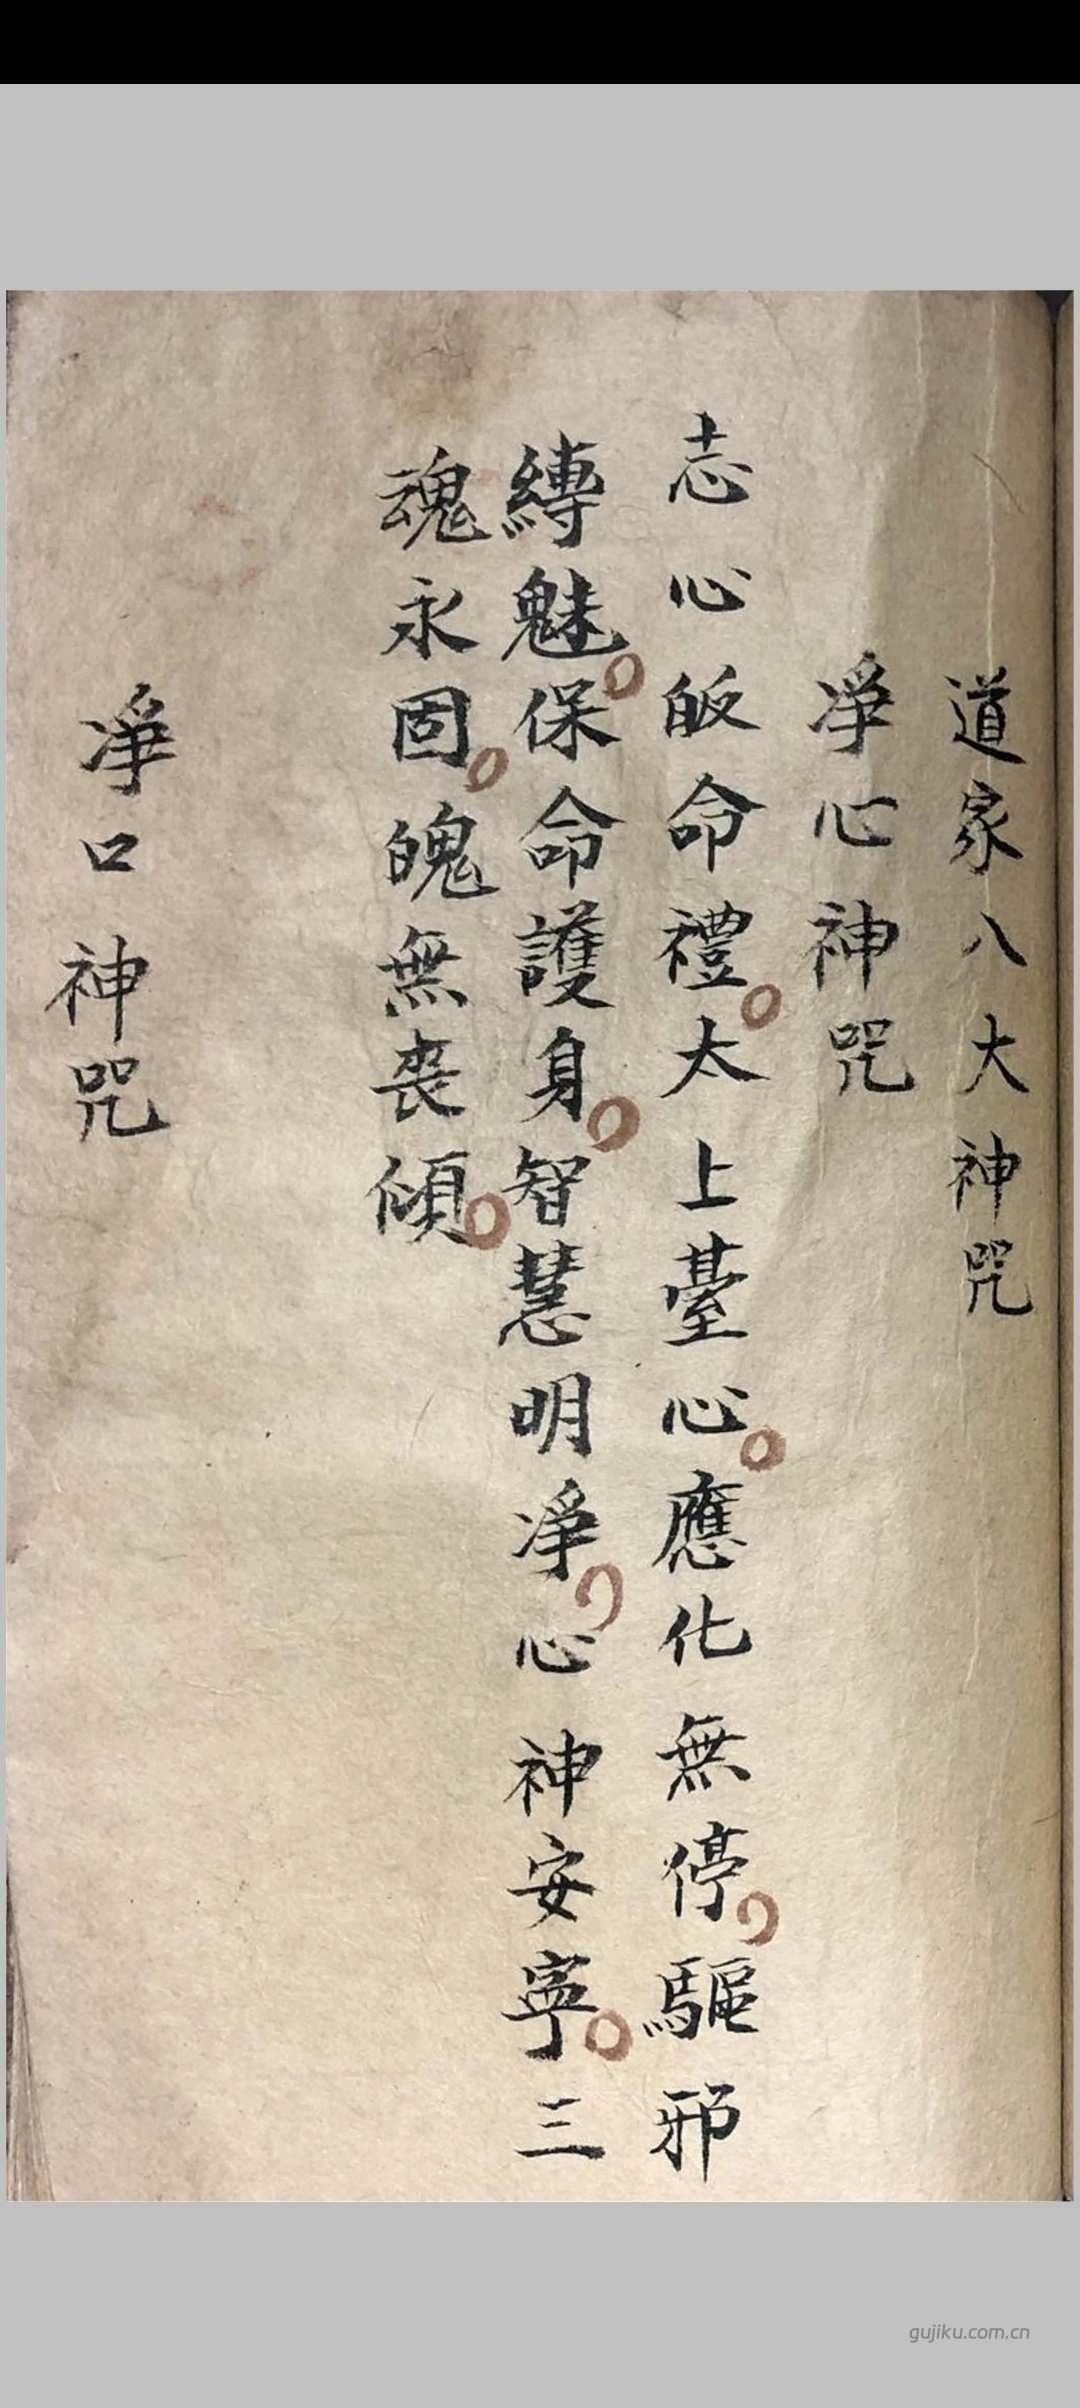 道家八大神咒
凈心神咒
志心皈命禮。太上臺心。應化無停。驅邪
縛魅。保命護身。智慧明凈。心神安寧。三
魂永固。魄無喪傾。
凈口神咒
gujiku.com.cn